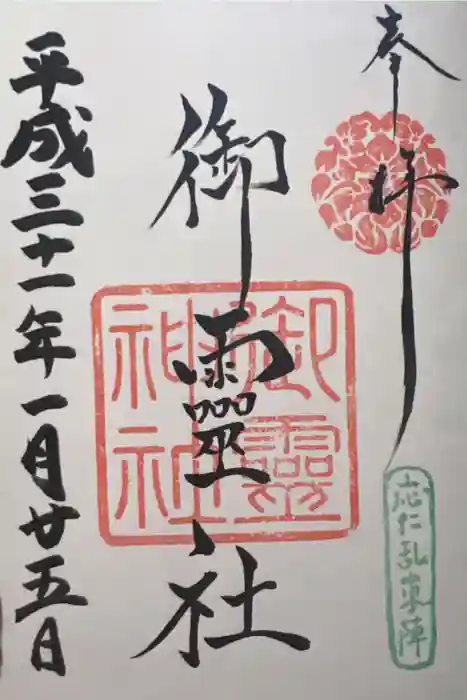 奉拝
応仁乱東陣
御靈社
御靈神社
平成三十一年一月廿五日